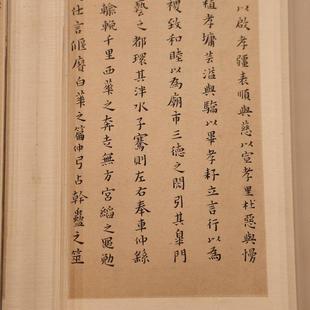 以啟孝疆表順與慈以宣孝里杜惡與慢
植孝墉芸溢與驕以畢孝耔立言行以為
稷致和睦以為廟市三德之閎引其皐門
藝之都環其泮水子騫則左右奉車仲繇
輸輓千里西華之奔走無方宮縚之黽勉
仕言偃廢白華之篇仲弓占幹蠱之筮